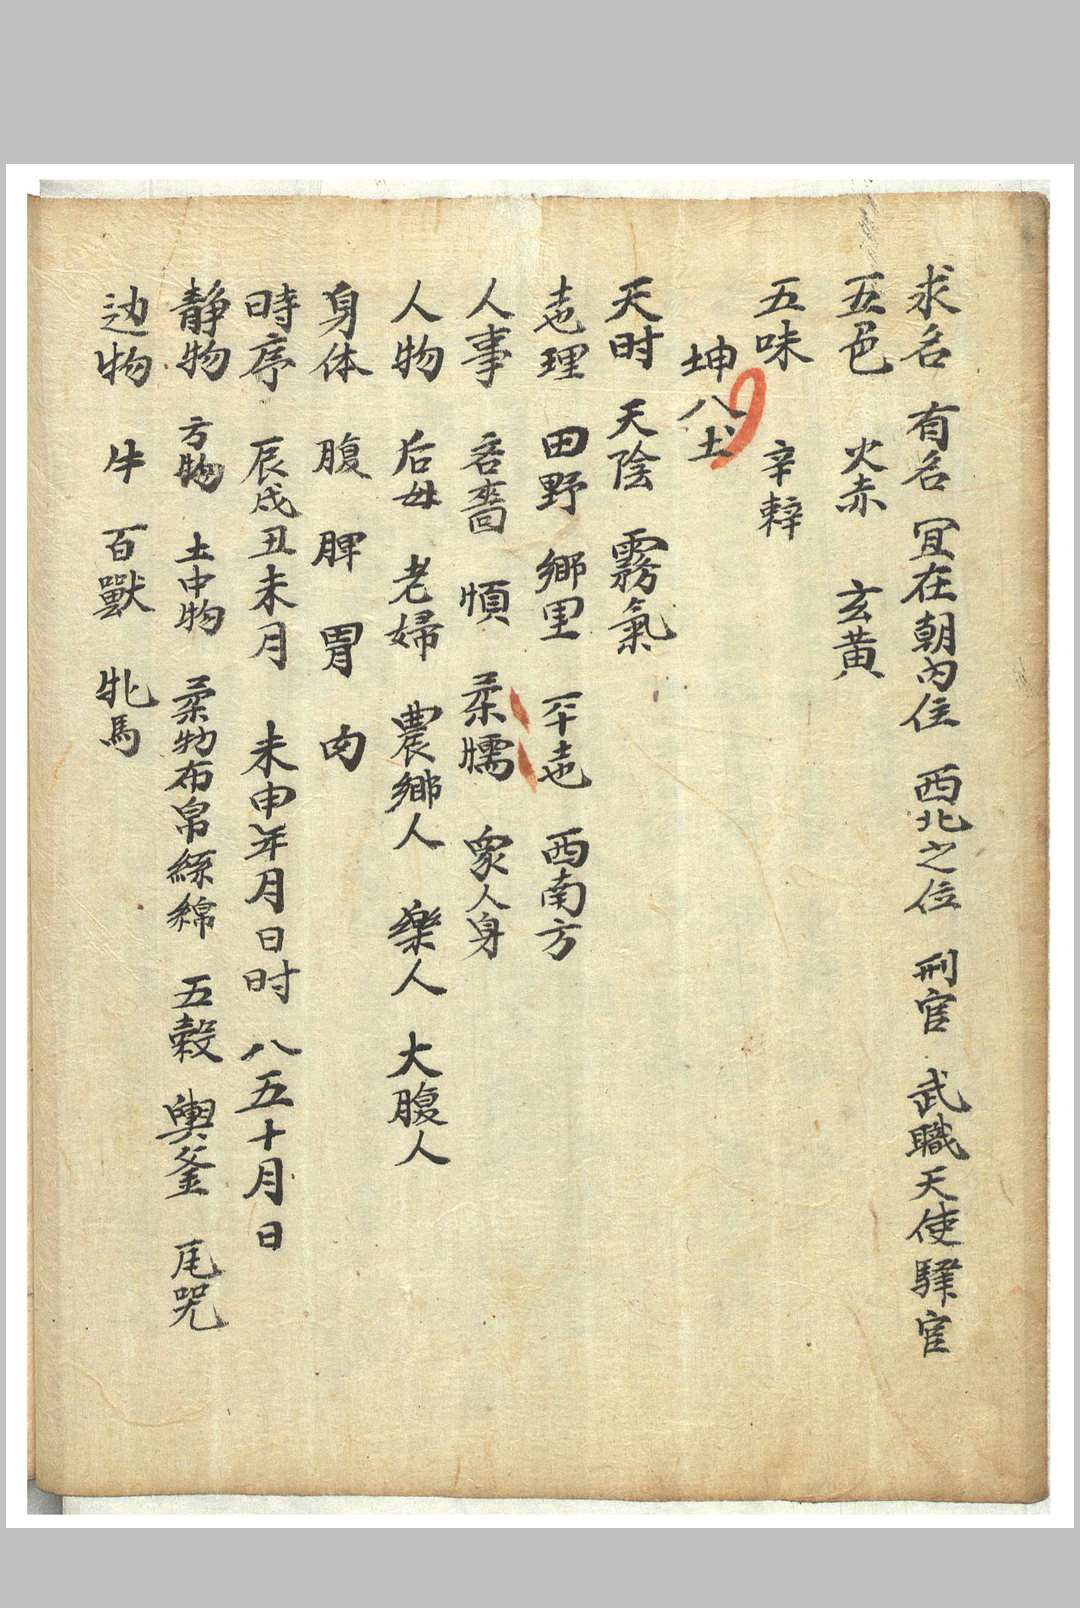 求名 有名 宜在朝内位 西北之位 刑官 武職天使驛官
五色 火赤 玄黄
五味 辛辣
坤八土
天时 天陰 霧氣
地理 田野 鄉里 平地 西南方
人事 吝嗇 順 柔懦 衆人身
人物 后母 老婦 農鄉人 樂人 大腹人
身体 腹 脾 胃 肉
時序 辰戌丑未月 未申年月日时 八五十月日
静物 方物 土中物 柔物布帛絲綿 五穀 輿釜 瓦器
动物 牛 百獸 牝馬